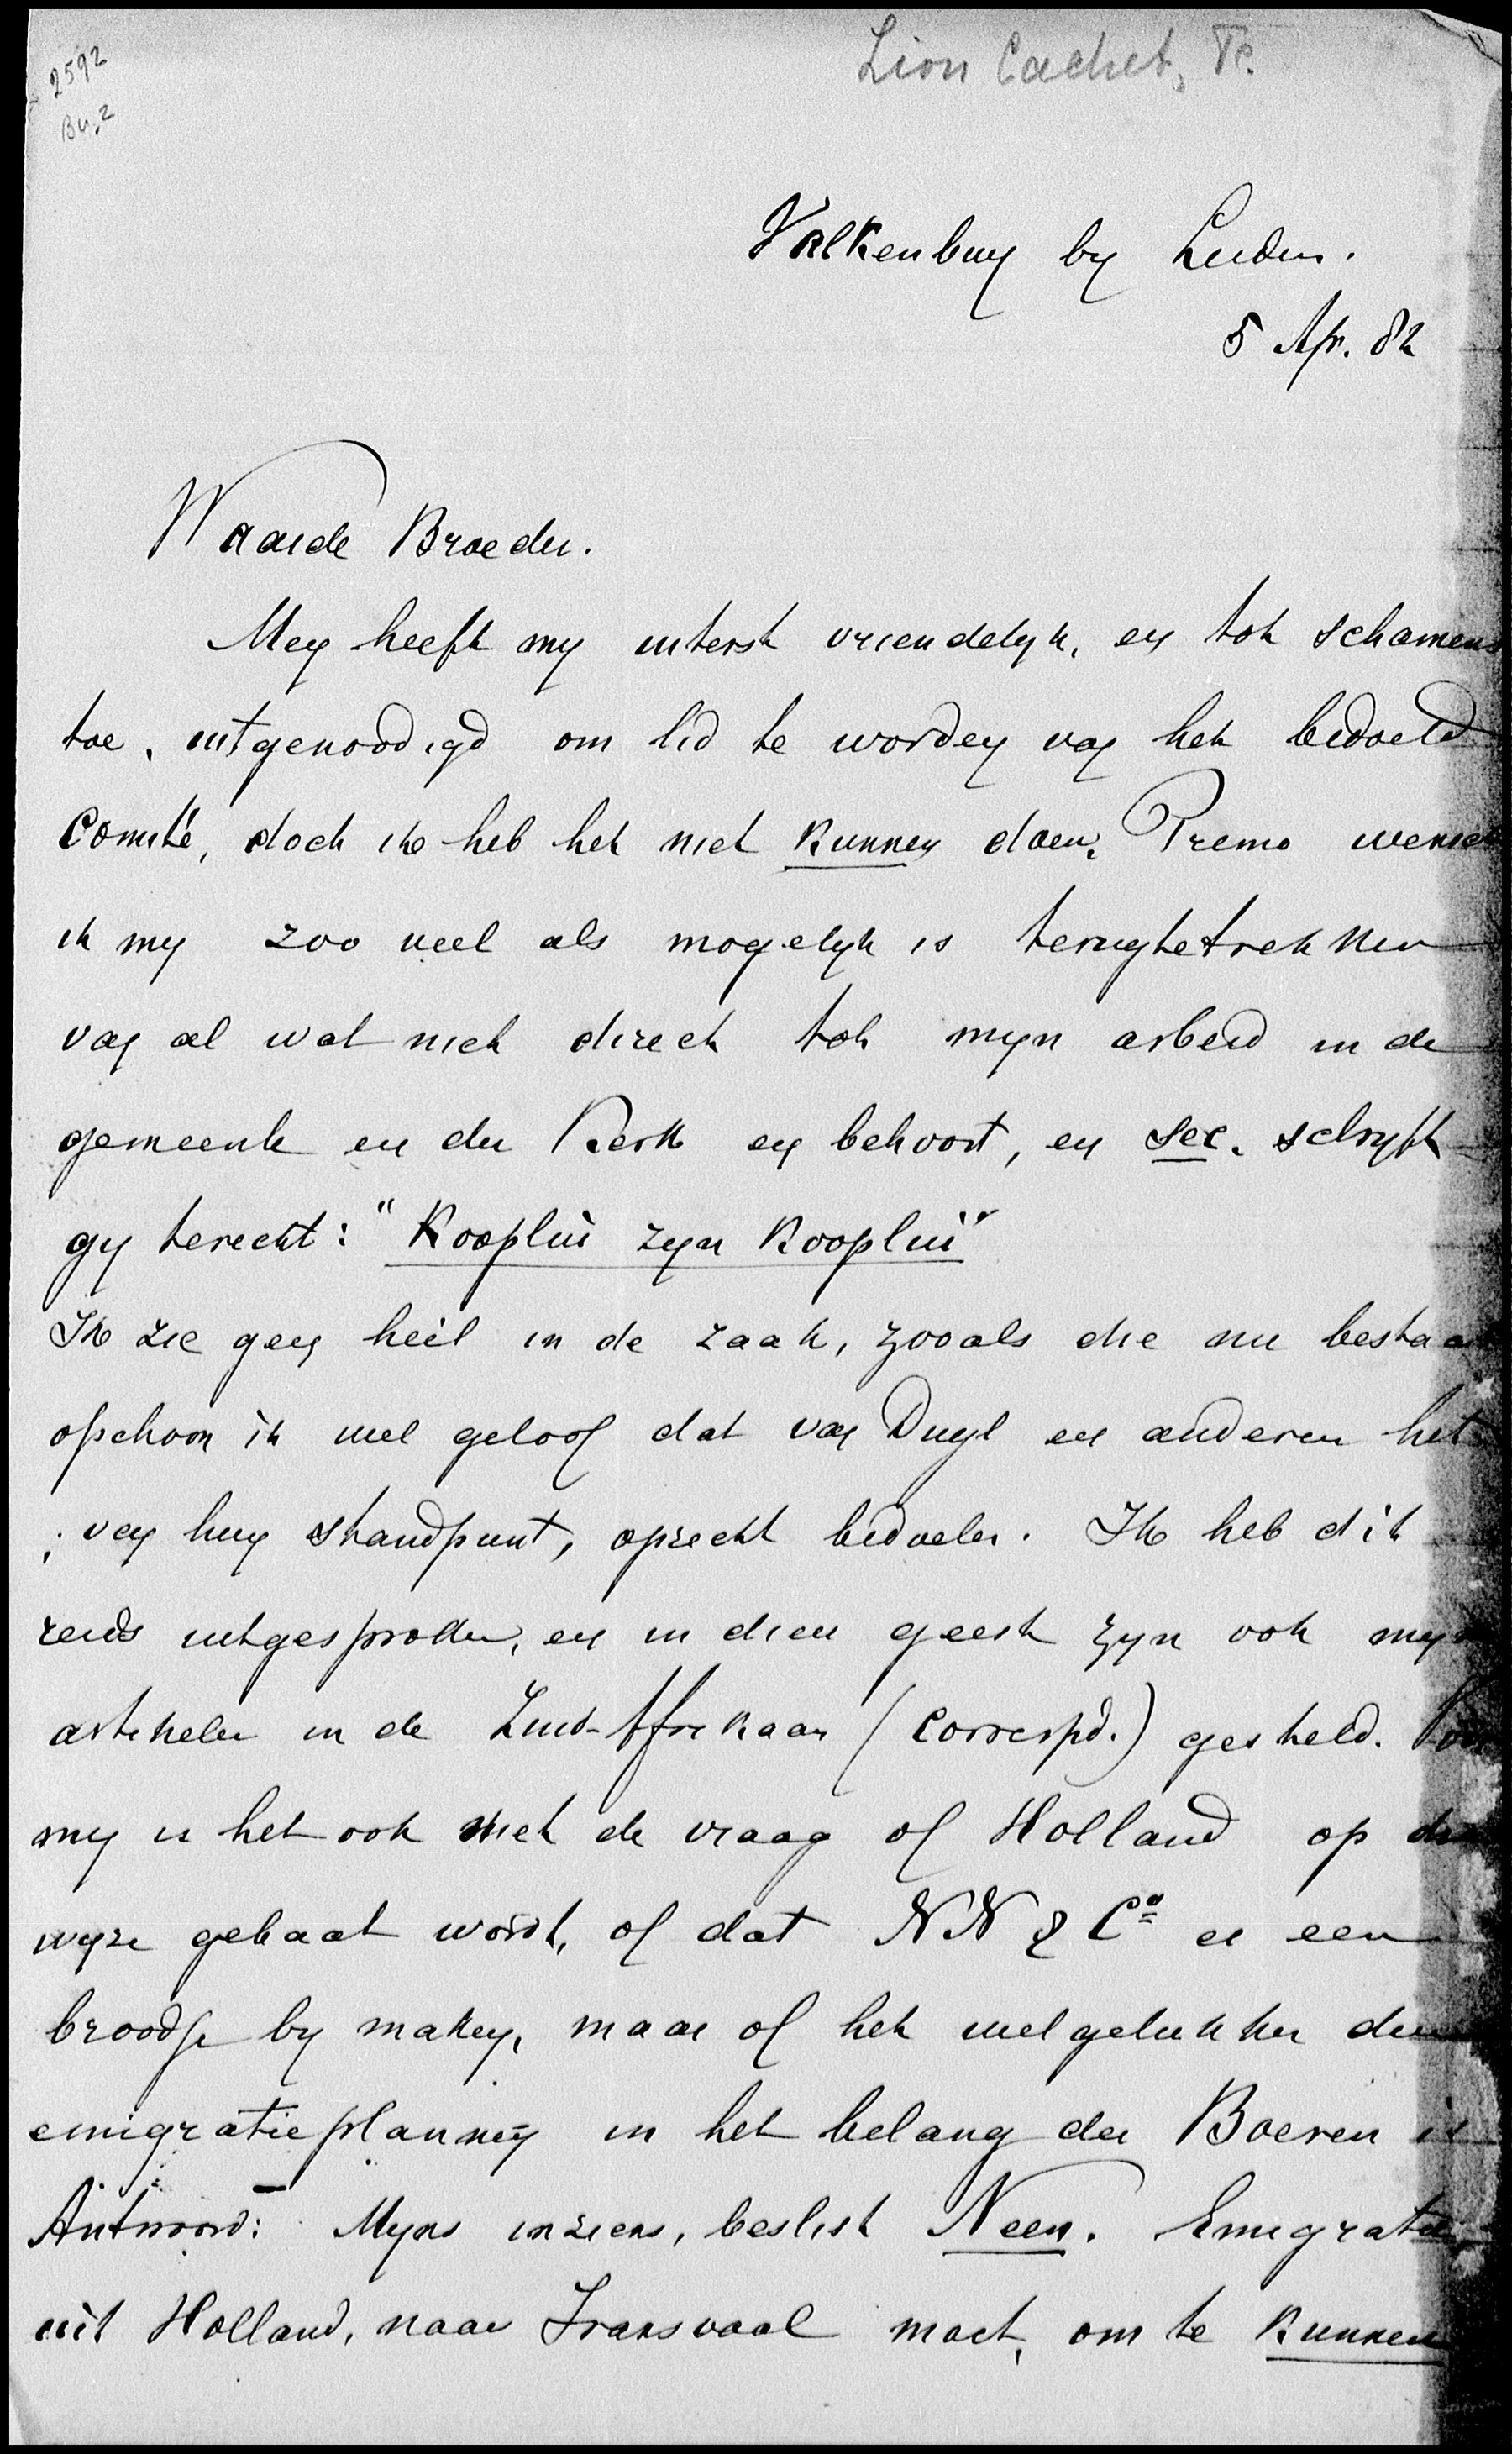 2592
Bu.2
Lion Cachet, Fr.
Valkenburg by Leiden.
5 Apr. 82
Waarde Broeder.
Men heeft my uiterst vriendelyk, en tot schamens
toe, uitgenoodigd om lid te worden van het bedoeld
Comité, doch ik heb het niet kunnen doen. Primo wensch
ik my zoo veel als mogelyk is terugtetrekken
van al wat niet direct tot myn arbeid in de
gemeente en der Kerk en behoort, en sec. schryft
gy terecht: "Kooplui zyn Kooplui"
Ik zie geen heil in de zaak, zooals die nu bestaat
opschoon ik wel geloof dat van Duyl en anderen het
, van hun standpunt, oprecht bedoelen. Ik heb dit
reeds uitgesproken, en in dien geest zyn ook myn
artikelen in de Zuid-Afrikaan (Correspd.) gesteld. Voor
my is het ook niet de vraag of Holland op die
wyze gebaat wordt, of dat NN & Co er een
broodje by maken, maar of het welgelukken der
emigratieplannen in het belang der Boeren is
Antwoord: Myns inziens, beslist Neen. Emigratie,
uit Holland, naar Transvaal moet, om te kunnen